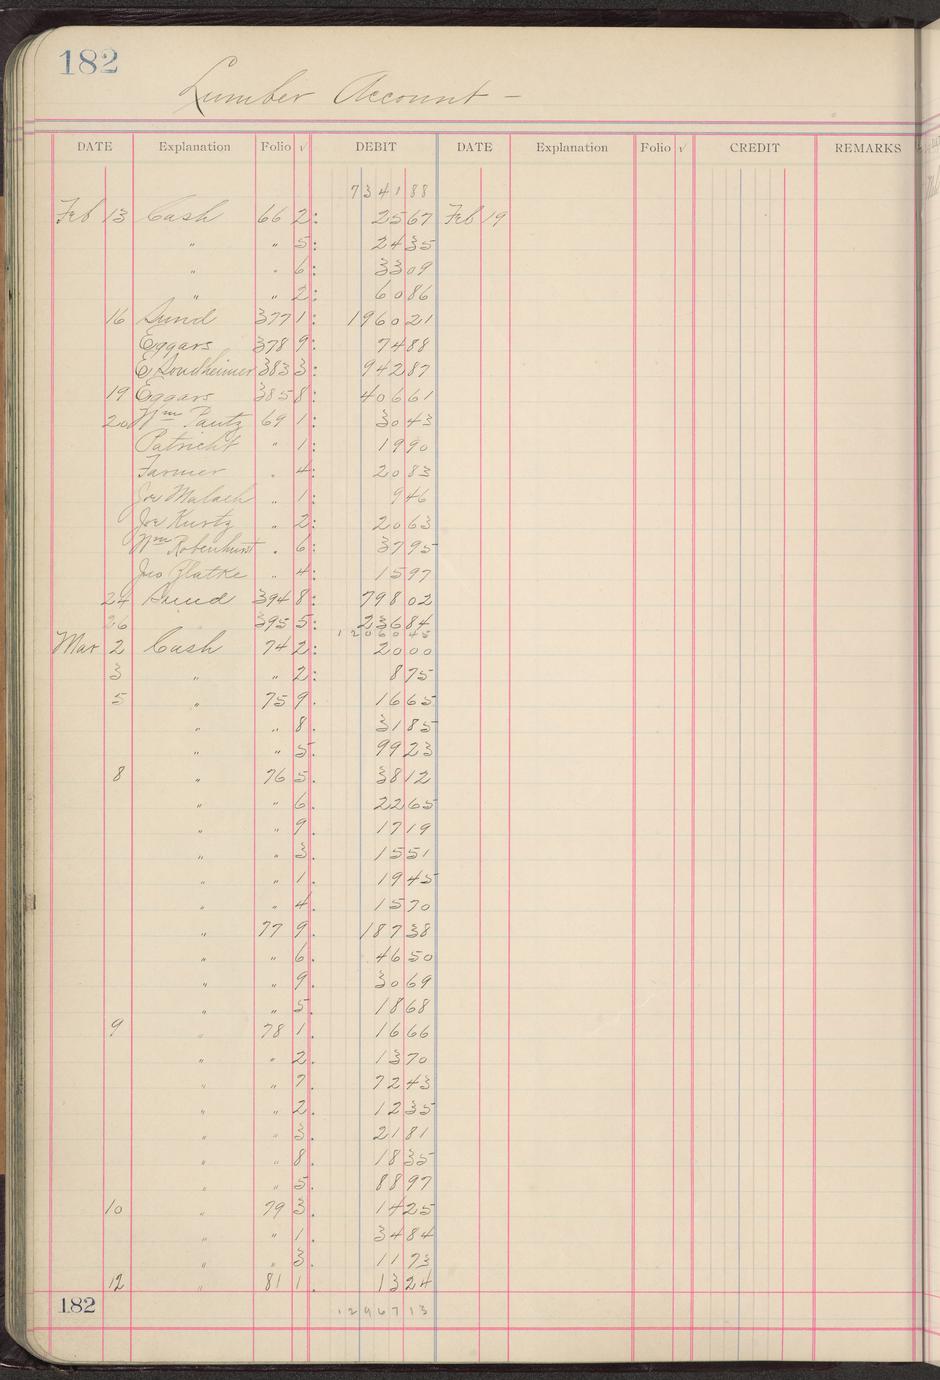 182
Lumber Account -
DATE Explanation Folio √ DEBIT DATE Explanation Folio √ CREDIT REMARKS
7341 88
Feb 13 Cash 66 2: 25 67 Feb 19
" " 5: 24 35
" " 6: 33 09
" " 2: 60 86
16 Sund 377 1: 1960 21
Eggars 378 9: 74 88
E Sondheimer 383 3: 942 87
19 Eggars 385 8: 406 61
20 Wm Pautz 69 1: 30 43
Patricht " 1: 19 90
Farmer " 4: 20 83
Joe Malach " 1: 9 46
Joe Kurtz " 2: 20 63
Wm Robenhurst " 6: 37 95
Jno Zlatke " 4: 15 97
24 Sund 394 8: 798 02
26 395 5: 236 84
12060 45
Mar 2 Cash 74 2: 20 00
3 " " 2: 8 75
5 " 75 9. 16 65
" " 8. 31 85
" " 5. 99 23
8 " 76 5. 38 12
" " 6. 22 65
" " 9. 17 19
" " 3. 15 51
" " 1. 19 45
" " 4. 15 70
" 77 9. 187 38
" " 6. 46 50
" " 9. 30 69
" " 5. 18 68
9 " 78 1. 16 66
" " 2. 13 70
" " 7. 72 43
" " 2. 12 35
" " 3. 21 81
" " 8. 18 35
" " 5. 88 97
10 " 79 3. 14 25
" " 1. 34 84
" " 3. 11 73
12 " 81 1. 13 24
182 12967 13